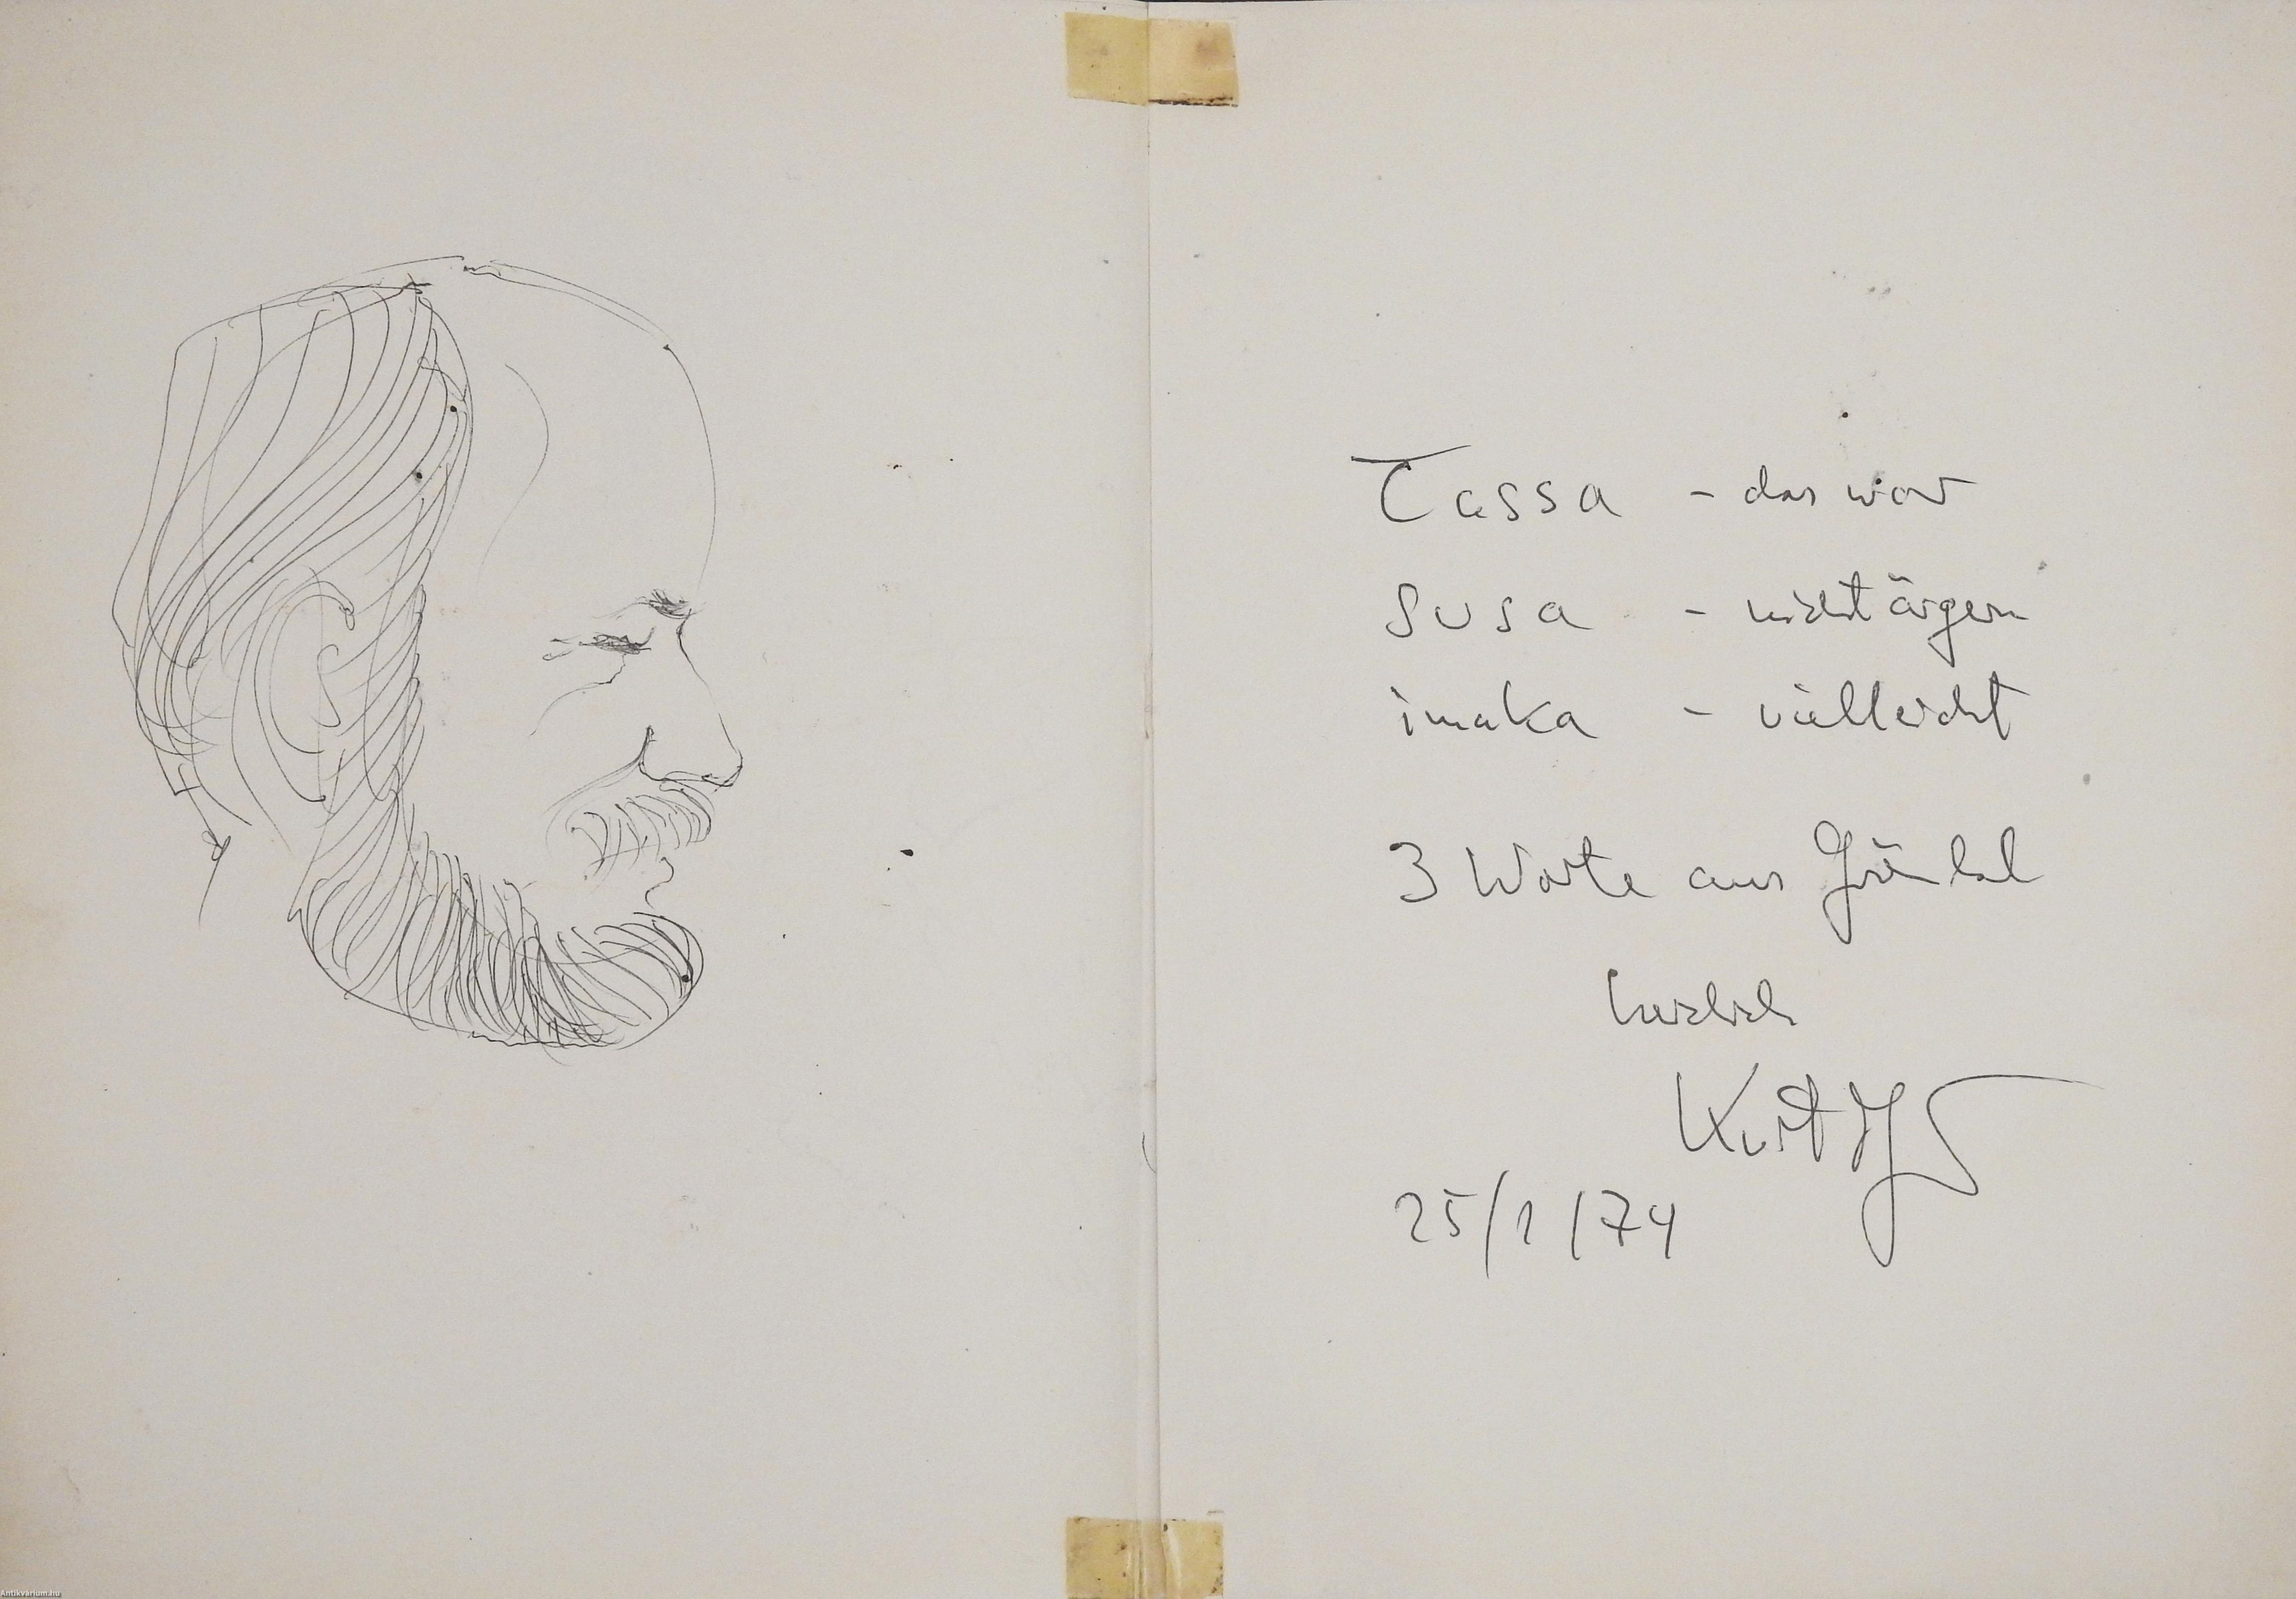 Tassa – das war
Susa – nicht ärgern
imaka – vielleicht
3 Worte aus Grönland
herzlich
Kurt
25/1/74
Antikvarium.hu